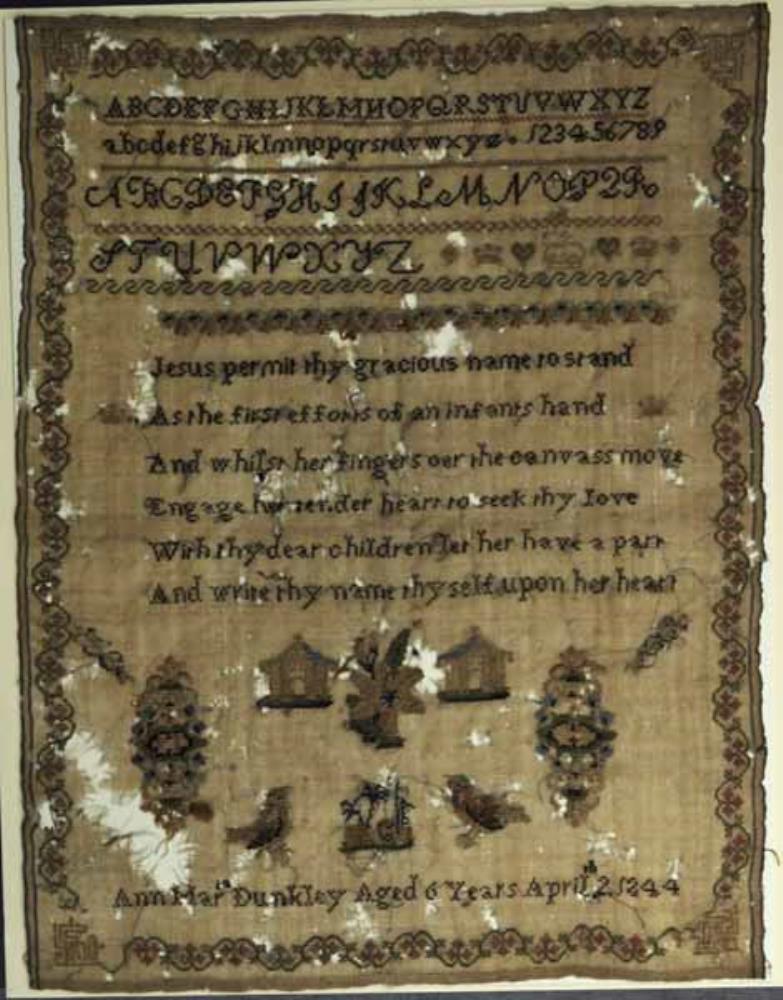 ABCDEFGHIJKLMNOPQRSTUVWXYZ
abcdefghijklmnopqrstuvwxyz. 123456789
ABCDEFGHIJKLMNOPQR
STUVWXYZ
Jesus permit thy gracious name to stand
As the first efforts of an infants hand
And whilst her fingers oer the canvass move
Engage her tender heart to seek thy love
With thy dear children let her have a part
And write thy name thy self upon her heart
Ann Mar<sup>ia</sup> Dunkley Aged 6 Years April 2<sup>th</sup> 1844